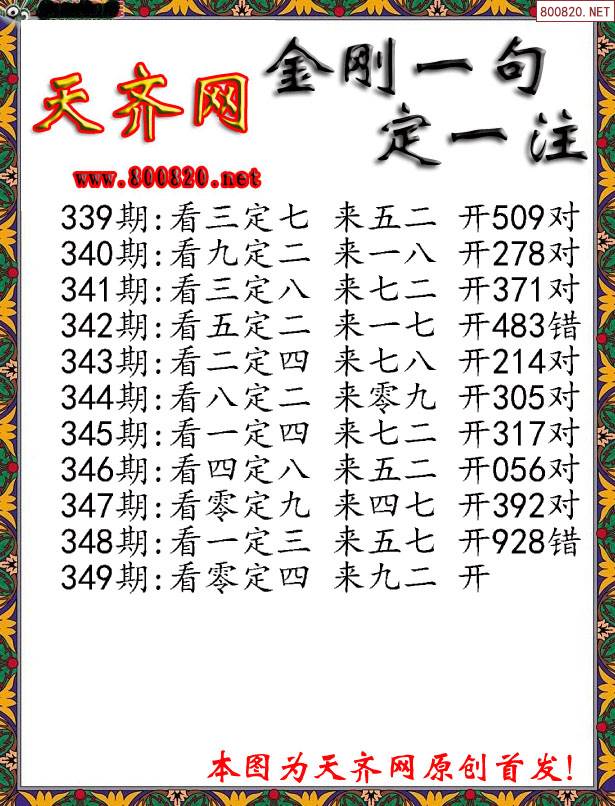 800820.NET
金刚一句
天齐网
定一注
www.800820.net
339期:看三定七 来五二 开509对
340期:看九定二 来一八 开278对
341期:看三定八 来七二 开371对
342期:看五定二 来一七 开483错
343期:看二定四 来七八 开214对
344期:看八定二 来零九 开305对
345期:看一定四 来七二 开317对
346期:看四定八 来五二 开056对
347期:看零定九 来四七 开392对
348期:看一定三 来五七 开928错
349期:看零定四 来九二 开
本图为天齐网原创首发!